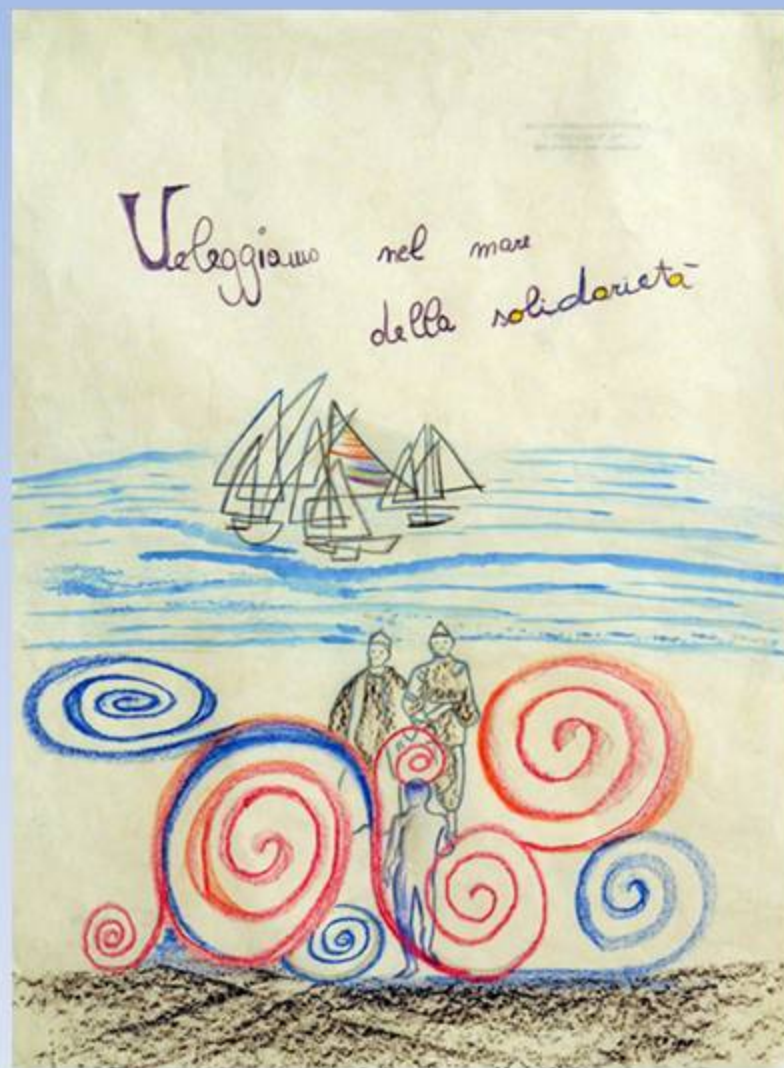 Veleggiamo nel mare
della solidarietà